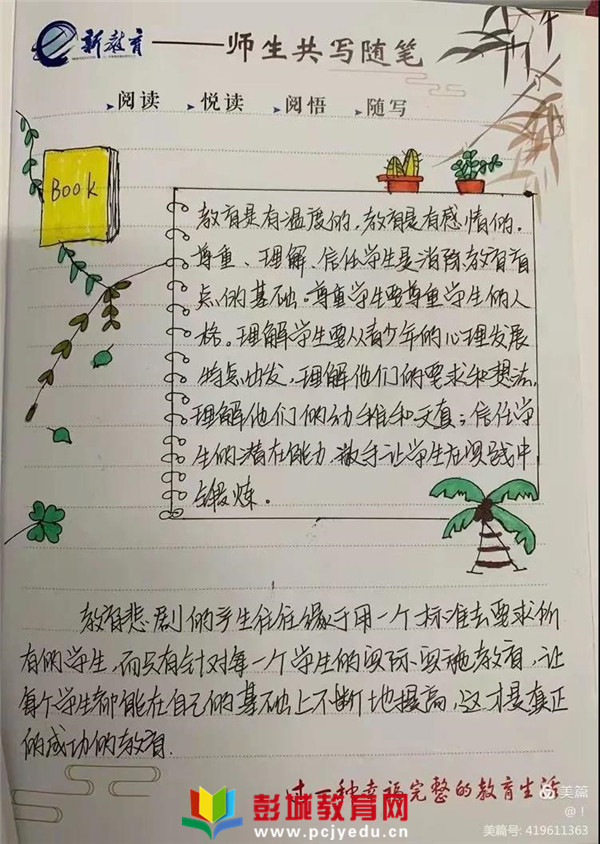 新教育——师生共写随笔
阅读 悦读 阅悟 随写
BOOK
教育是有温度的，教育是有感情的。
尊重、理解、信任学生是消除教育盲
点的基础。尊重学生要尊重学生的人
格。理解学生要从青少年的心理发展
特点出发，理解他们的要求和想法，
理解他们的幼稚和天真；信任学
生的潜在能力，放手让学生在实践中
锻炼。
教育悲剧的产生往往缘于用一个标准去要求所
有的学生，而只有针对每一个学生的实际实施教育，让
每个学生都能在自己的基础上不断地提高，这才是真正
的成功的教育.
过一种幸福完整的教育生活
美篇
@！
彭城教育网
www.pcjyedu.cn
美篇号: 419611363